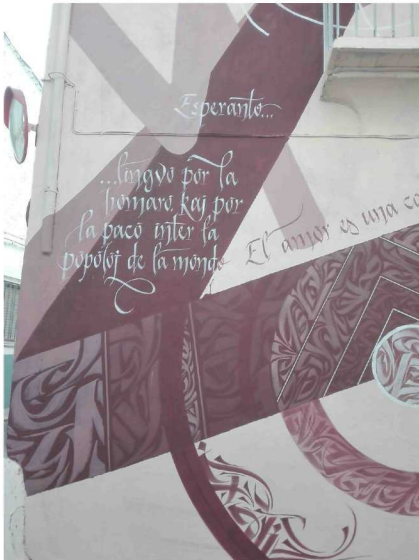 Esperanto...
...lingvo por la
homaro kaj por
la paco inter la
popoloj de la mondo
El amor es una